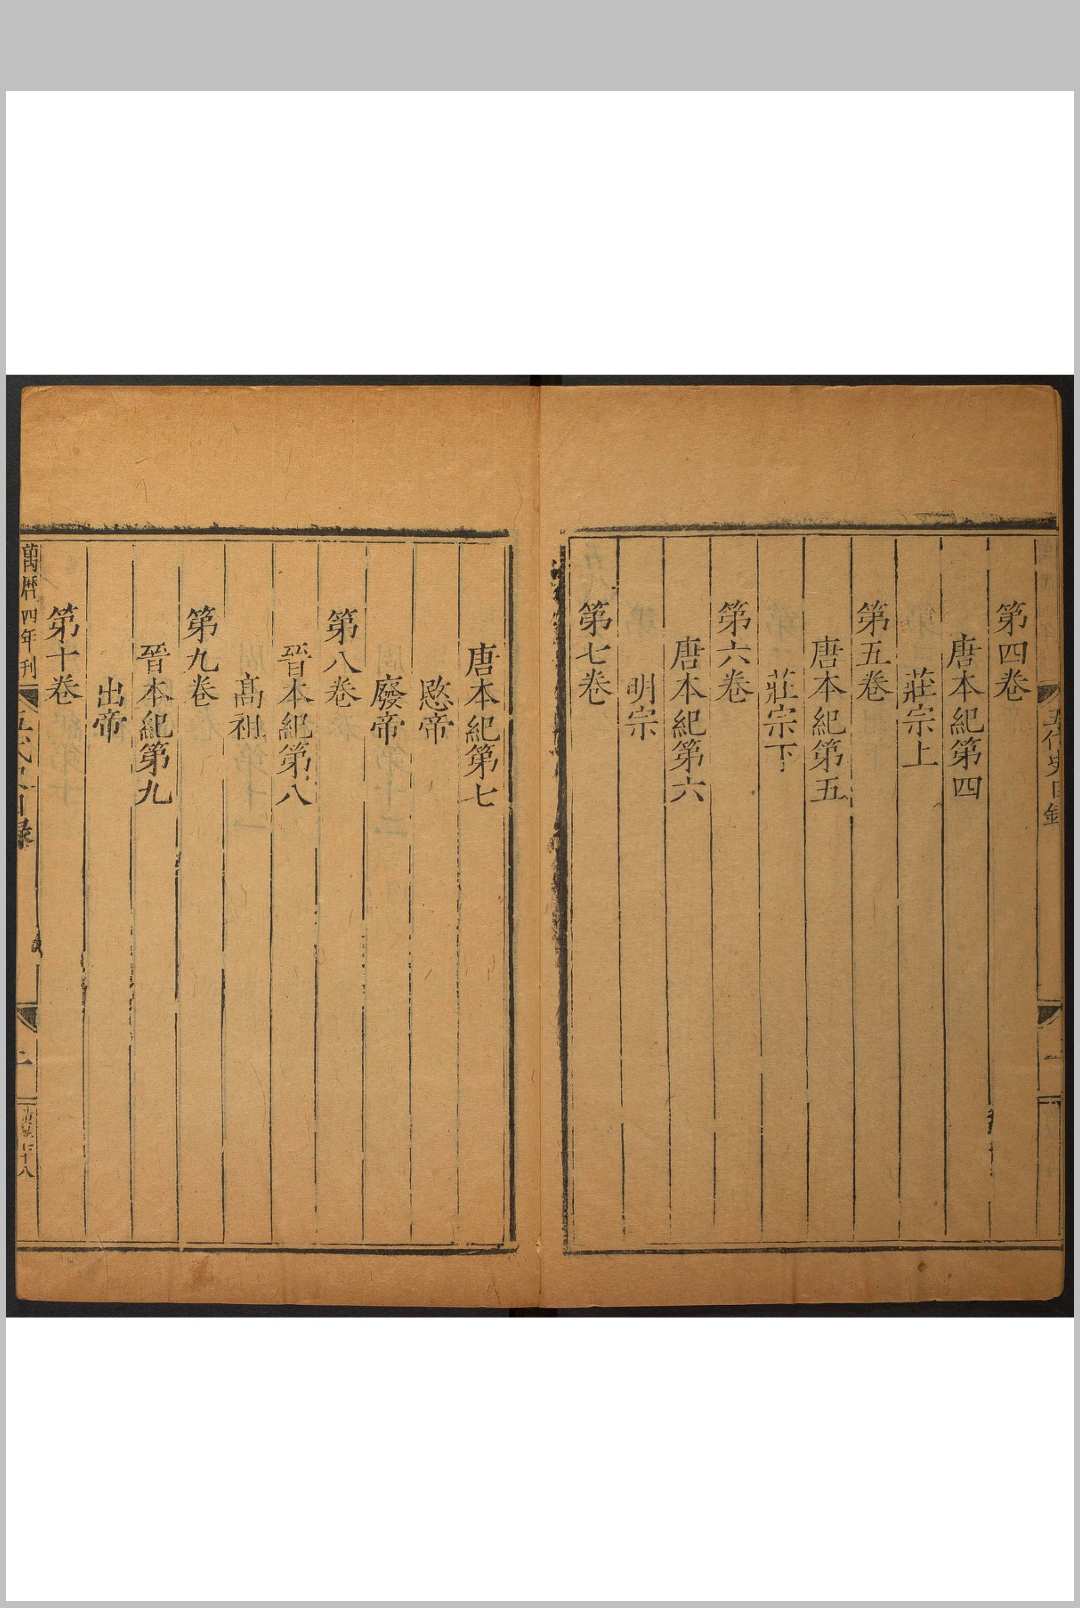 五代史目錄
二
第四卷
唐本紀第四
莊宗上
第五卷
唐本紀第五
莊宗下
第六卷
唐本紀第六
明宗
第七卷
唐本紀第七
愍帝
廢帝
第八卷
晉本紀第八
髙祖
第九卷
晉本紀第九
出帝
第十卷
萬曆四年刊
五代史目録
二